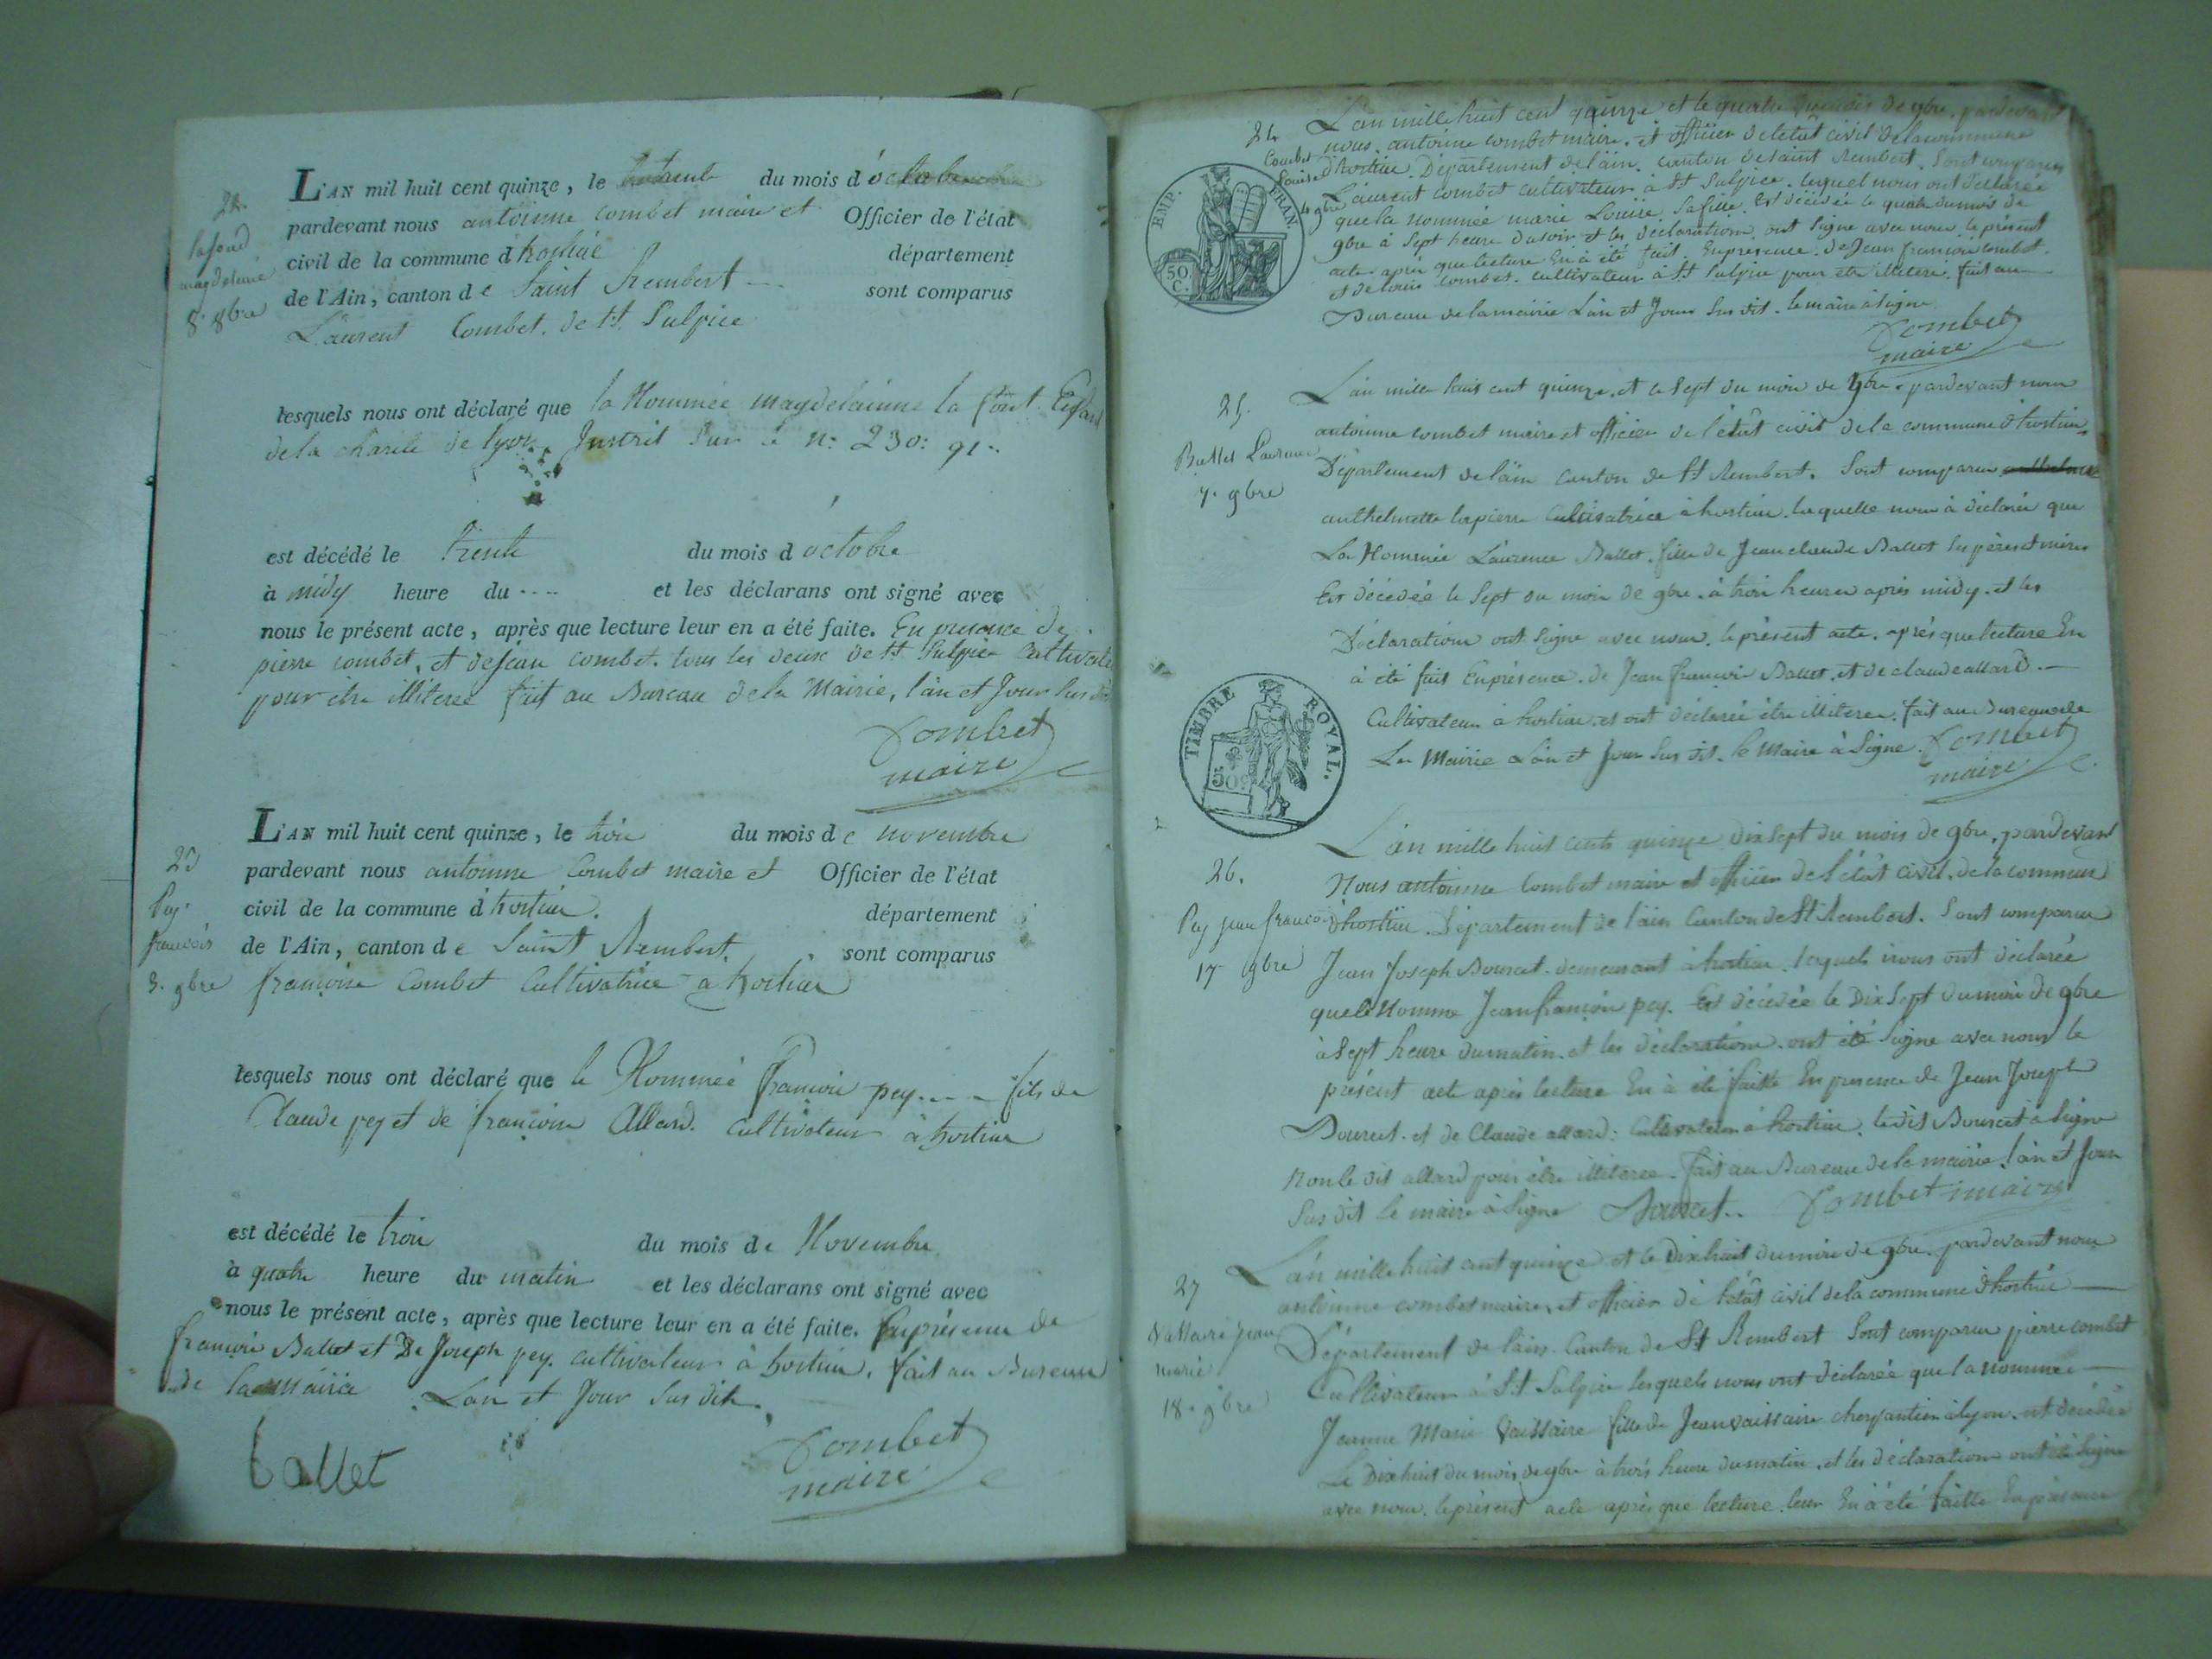 22.
lafond
magdelaine
8bre
L'AN mil huit cent quinze, le trente du mois d'octobre
pardevant nous antoinne combet maire et Officier de l'état
civil de la commune d'hostiac département
de l'Ain, canton de Saint Rembert sont comparus
Laurent Combet. de St. Sulpice
lesquels nous ont déclaré que la Nommée magdelainne la font. Enfant
de la charité de lyon. Inscrit Sur le n: 230: 91..
est décédé le trente du mois d'octobre
à midy heure du .... et les déclarans ont signé avec
nous le présent acte, après que lecture leur en a été faite. En presence de
pierre combet, et de Jean combet. tous les deux de St Sulpice Cultivate
pour être illiteree fait au Bureau de la Mairie, l'an et Jour Sus dit
Combet
maire
23
Pey
francois
3. 9bre
L'AN mil huit cent quinze, le trois du mois de novembre
pardevant nous antoinne Combet maire et Officier de l'état
civil de la commune d'hostiac. département
de l'Ain, canton de Saint Rembert. sont comparus
francoise Combet Cultivatrice à hostiac
lesquels nous ont déclaré que le Nommée francois pey.... fils de
Claude pey et de francoise Allard. Cultivateur à hostiac
est décédé le trois du mois de Novembre
à quatre heure du matin et les déclarans ont signé avec
nous le présent acte, après que lecture leur en a été faite. En présence de
francois Ballet et De Joseph pey. cultivateur à hostiac. fait au Bureau
de la mairie. L'an et Jour Sus dit.
ballet
Combet
maire
24
Combet
Louise
4 9bre
EMP. FRAN.
50.
C.
L'an mille huit cent quinze et le quatre du mois de 9bre. pardevant
nous. antoinne combet maire. et officier de l'etat civil de la commune
d'hostiac. Département de l'ain. canton de saint Rembert. Sont comparus
Laurent combet cultivateur à St Sulpice. lequel nous ont déclarée
que la nommée marie Louise. Sa fille. Est décédée le quatre du mois de
9bre à Sept heure du soir et les déclaration ont Signe avec nous le présent
acte après que lecture En à été fait. En présence. de Jean francois combet.
et de louis combet. cultivateur à St Sulpice pour etre illiteree. fait au
Bureau de la mairie L'an et Jour Sus dit. le maire à Signe.
Combet
maire
25.
Ballet Laurence
7. 9bre
L'an mille huis cent quinze, et le sept du mois de 9bre. pardevant nous
antoinne combet maire et officier de l'état civil de la commune d'hostiac
Département de l'ain canton de St Rembert. Sont comparus
anthelmette lapierre Cultivatrice à hostiac. laquelle nous à déclarée que
La Nommée Laurence Ballet. fille de Jean claude Ballet Ses pères et mères
Est décédée le Sept du mois de 9bre. à trois heures après midy. et les
Déclaration ont Signe avec nous. le présent acte. après que lecture En
à été fait En présence. de Jean francois Ballet. et de claude allard.
Cultivateur à hostiac. et ont déclarée être illiteree. fait au Bureau de
La Mairie L'an et Jour Sus dit. le Maire à Signe. Combet
maire
TIMBRE ROYAL.
50c
26.
Pey jean francois
17 9bre
L'an mille huit cents quinze Dix Sept du mois de 9bre, pardevant
Nous antoinne Combet maire et officier de l'état civil. de la commune
d'hostiac. Département de l'ain Canton de St Rembert. Sont comparus
Jean Joseph Bourcet. demeurant à hostiac. lesquels nous ont déclarée
que le Nomme Jean francois pey. Est décédée le Dix Sept du mois de 9bre
à Sept heure du matin. et les déclaration. ont été Signe avec nous le
présent acte après lecture En à été faitte En presence de Jean Joseph
Bourcet. et de Claude allard: Cultivateur à hostiac. le dit Bourcet à Signe
Non le dit allard pour être illiteree. fait au Bureau de la mairie l'an et Jour
Sus dit le maire à Signe Bourcet.. Combet maire
27
Vaissaire Jean
marie
18. 9bre
L'an mille huit cent quinze et le Dix huit du mois de 9bre. pardevant nous
antoinne combet maire, et officier de l'état civil de la commune d'hostiac
Département de l'ain. Canton de St Rembert Sont comparus pierre combet
Cultivateur à St Sulpice lesquels nous ont déclarée que la nommée
Jeanne Marie Vaissaire fille de Jean vaissaire charpantier à lyon. est décédée
Le Dix huit du mois de 9bre à trois heure du matin. et les déclaration ont été Signe
avec nous. le présent acte après que lecture. leur En à été faitte En présence